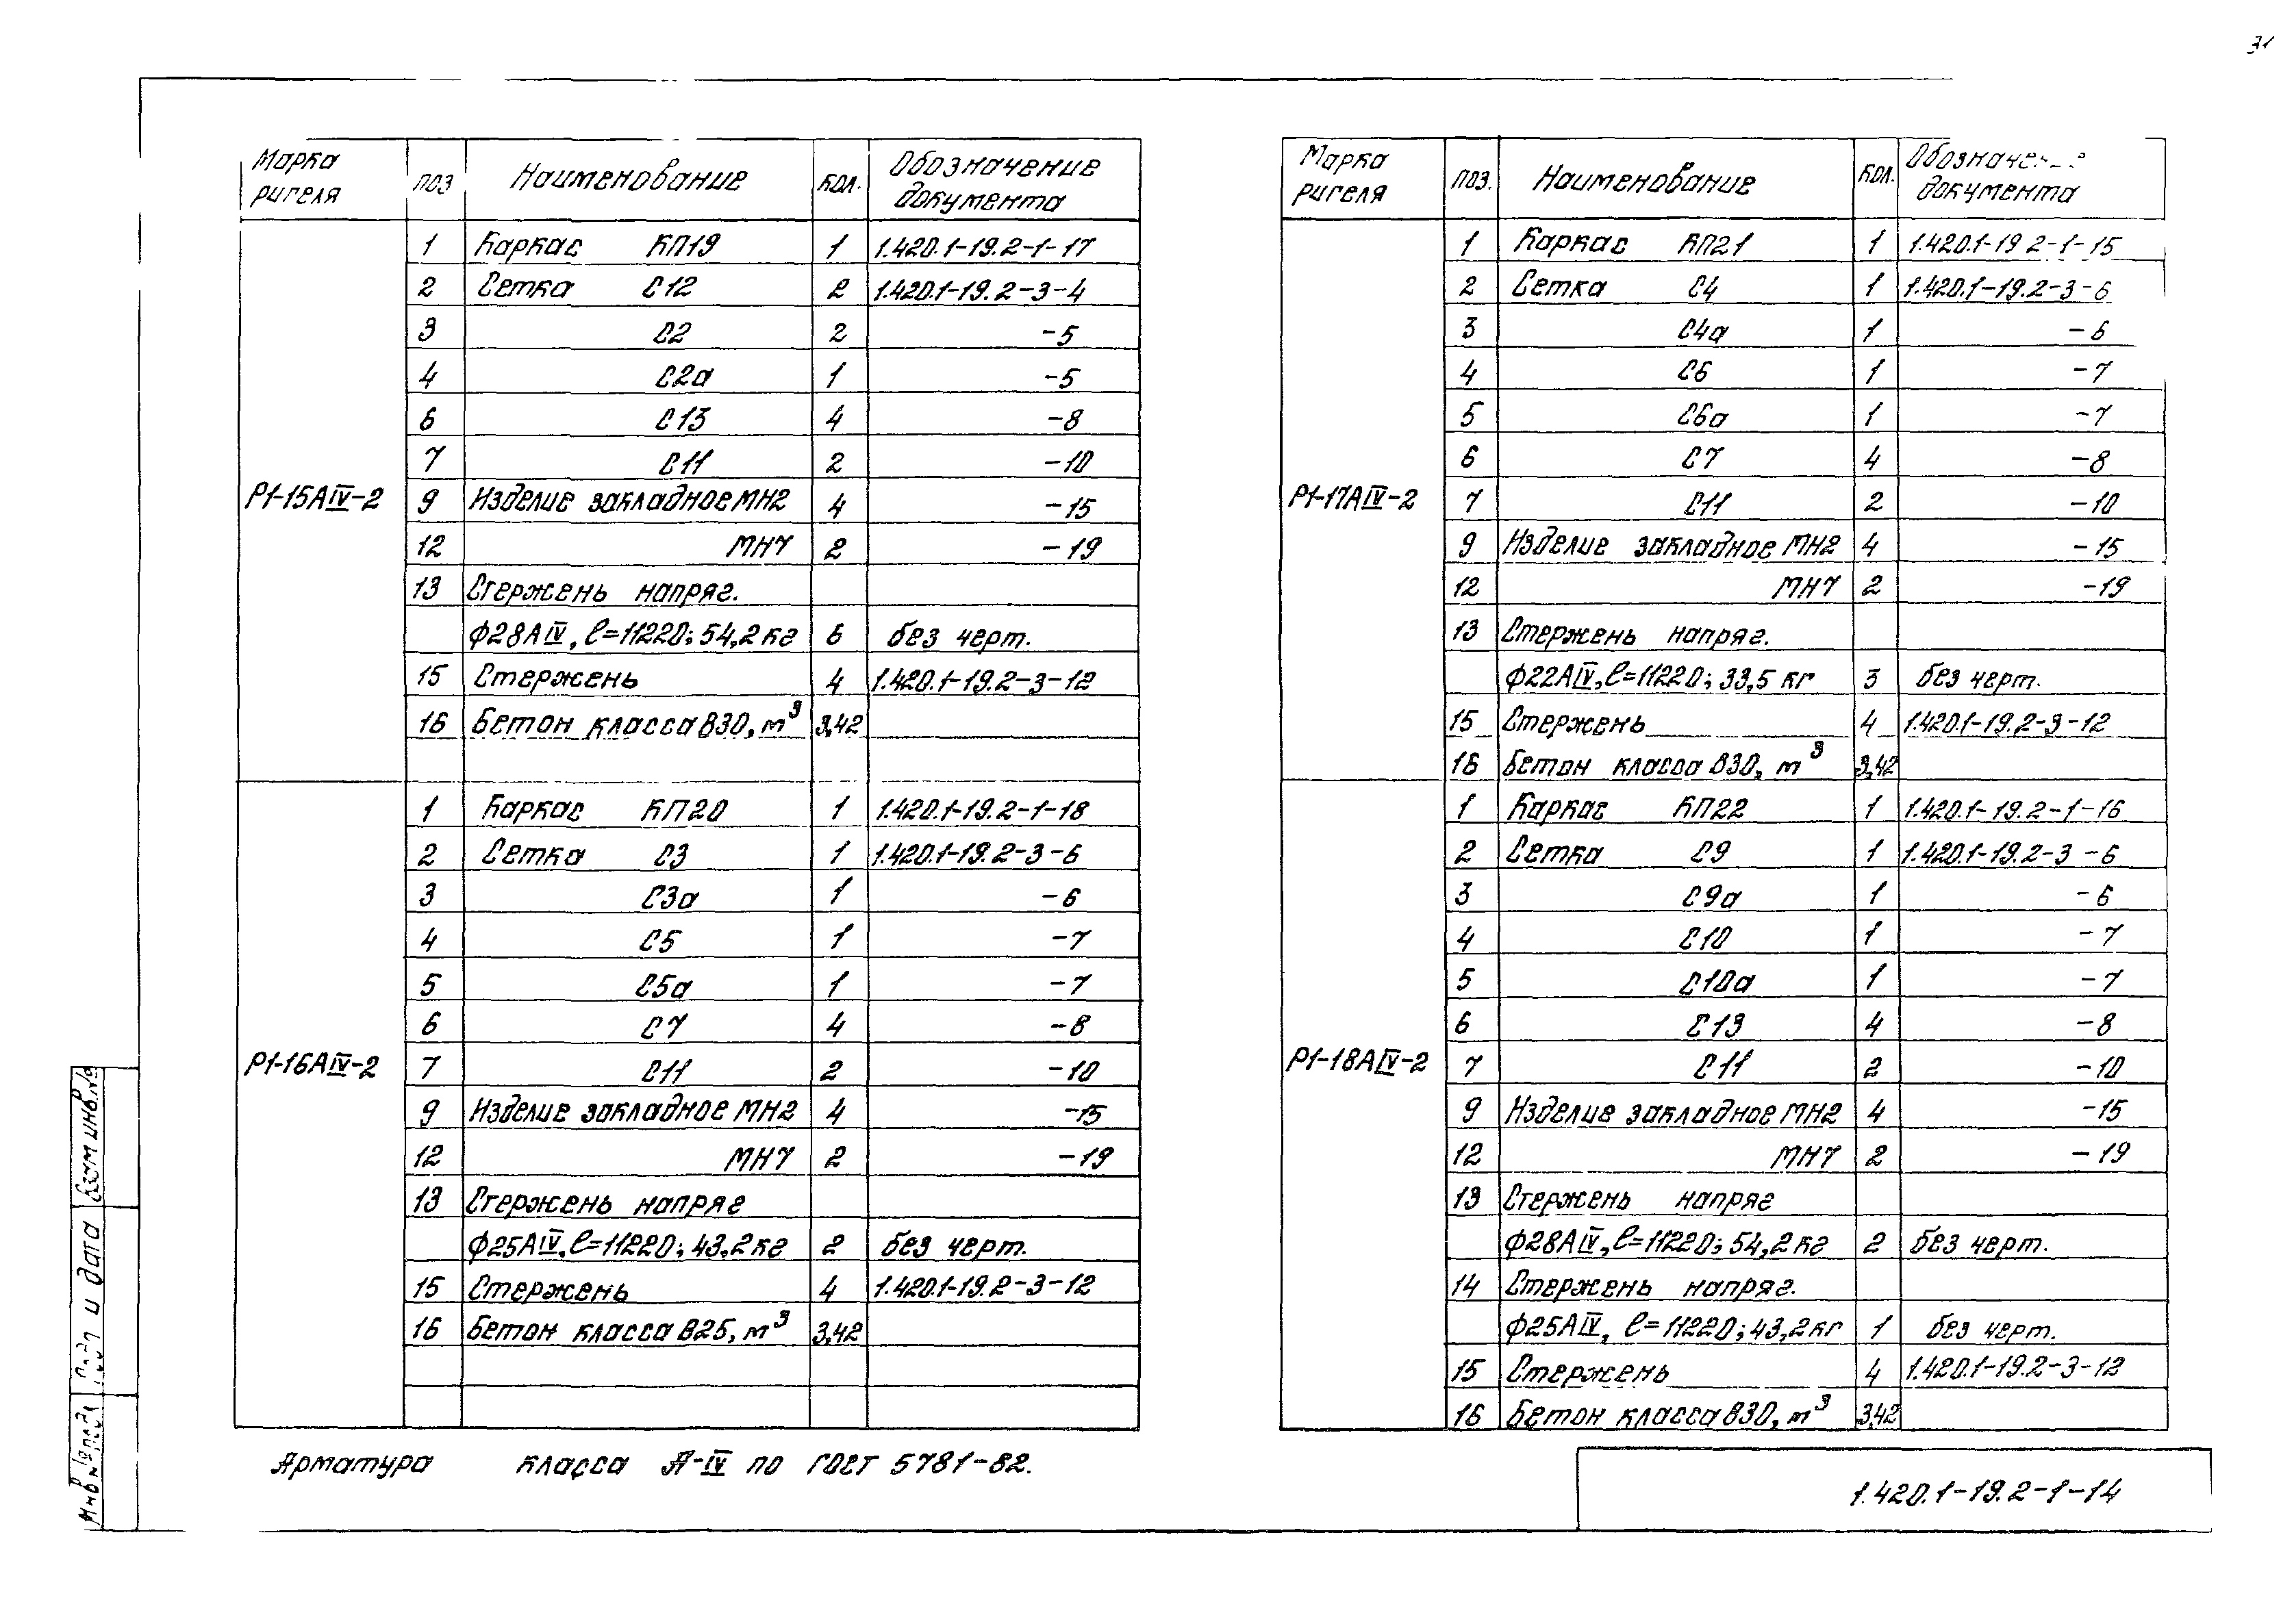 31
Марка ригеля | поз | Наименование | кол. | Обозначение документа
Р1-15АIV-2
1 | Каркас КП19 | 1 | 1.420.1-19.2-1-17
2 | Сетка С12 | 2 | 1.420.1-19.2-3-4
3 | С2 | 2 | -5
4 | С2а | 1 | -5
6 | С13 | 4 | -8
7 | С11 | 2 | -10
9 | Изделие закладное МН2 | 4 | -15
12 | МН7 | 2 | -19
13 | Стержень напряг.
ф28АIV, ℓ=11220; 54,2кг | 6 | без черт.
15 | Стержень | 4 | 1.420.1-19.2-3-12
16 | Бетон класса В30, м³ | 3,42
Р1-16АIV-2
1 | Каркас КП20 | 1 | 1.420.1-19.2-1-18
2 | Сетка С3 | 1 | 1.420.1-19.2-3-6
3 | С3а | 1 | -6
4 | С5 | 1 | -7
5 | С5а | 1 | -7
6 | С7 | 4 | -8
7 | С11 | 2 | -10
9 | Изделие закладное МН2 | 4 | -15
12 | МН7 | 2 | -19
13 | Стержень напряг
ф25АIV, ℓ=11220; 43,2кг | 2 | без черт.
15 | Стержень | 4 | 1.420.1-19.2-3-12
16 | Бетон класса В25, м³ | 3,42
Марка ригеля | поз. | Наименование | кол. | документа
Р1-17АIV-2
1 | Каркас КП21 | 1 | 1.420.1-19 2-1-15
2 | Сетка С4 | 1 | 1.420.1-19.2-3-6
3 | С4а | 1 | -6
4 | С6 | 1 | -7
5 | С6а | 1 | -7
6 | С7 | 4 | -8
7 | С11 | 2 | -10
9 | Изделие закладное МН2 | 4 | -15
12 | МН7 | 2 | -19
13 | Стержень напряг.
ф22АIV, ℓ=11220; 33,5 кг | 3 | без черт.
15 | Стержень | 4 | 1.420.1-19.2-3-12
16 | Бетон класса В30, м³ | 3,42
Р1-18АIV-2
1 | Каркас КП22 | 1 | 1.420.1-19.2-1-16
2 | Сетка С9 | 1 | 1.420.1-19.2-3-6
3 | С9а | 1 | -6
4 | С10 | 1 | -7
5 | С10а | 1 | -7
6 | С13 | 4 | -8
7 | С11 | 2 | -10
9 | Изделие закладное МН2 | 4 | -15
12 | МН7 | 2 | -19
13 | Стержень напряг
ф28АIV, ℓ=11220; 54,2кг | 2 | без черт.
14 | Стержень напряг.
ф25АIV, ℓ=11220; 43,2кг | 1 | без черт.
15 | Стержень | 4 | 1.420.1-19.2-3-12
16 | Бетон класса В30, м³ | 3,42
Арматура класса А-IV по ГОСТ 5781-82.
1.420.1-19.2-1-14
Взам инв.№
и дата
Инв №